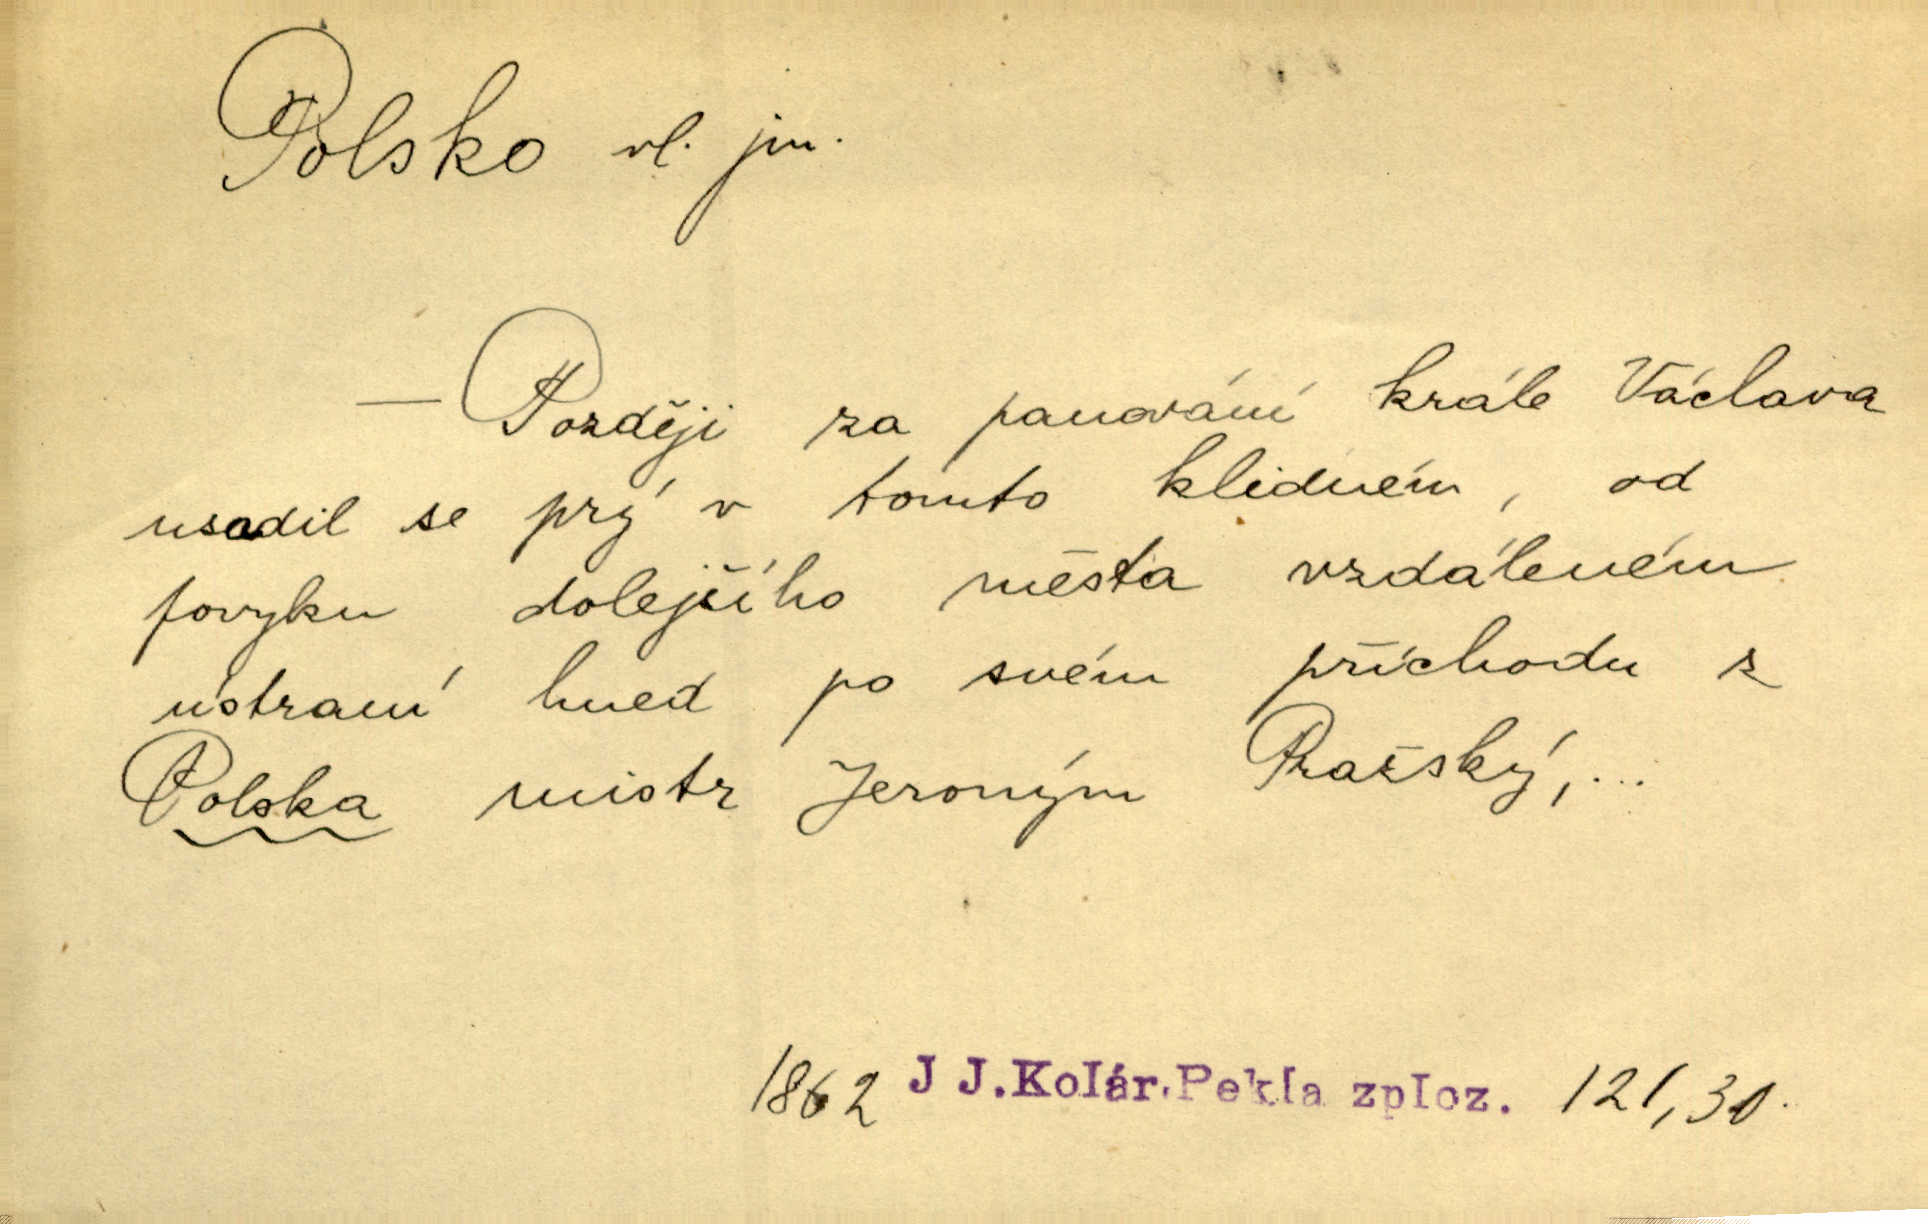 Polsko vl. jm.
— Později za panování krále Václava
usadil se prý v tomto klidném, od
povyku dolejšího města vzdáleném
ústraní hned po svém příchodu z
Polska mistr Jeroným Pražský, ...
1862 J J.Kolár.Pekla zploz. 121,30.